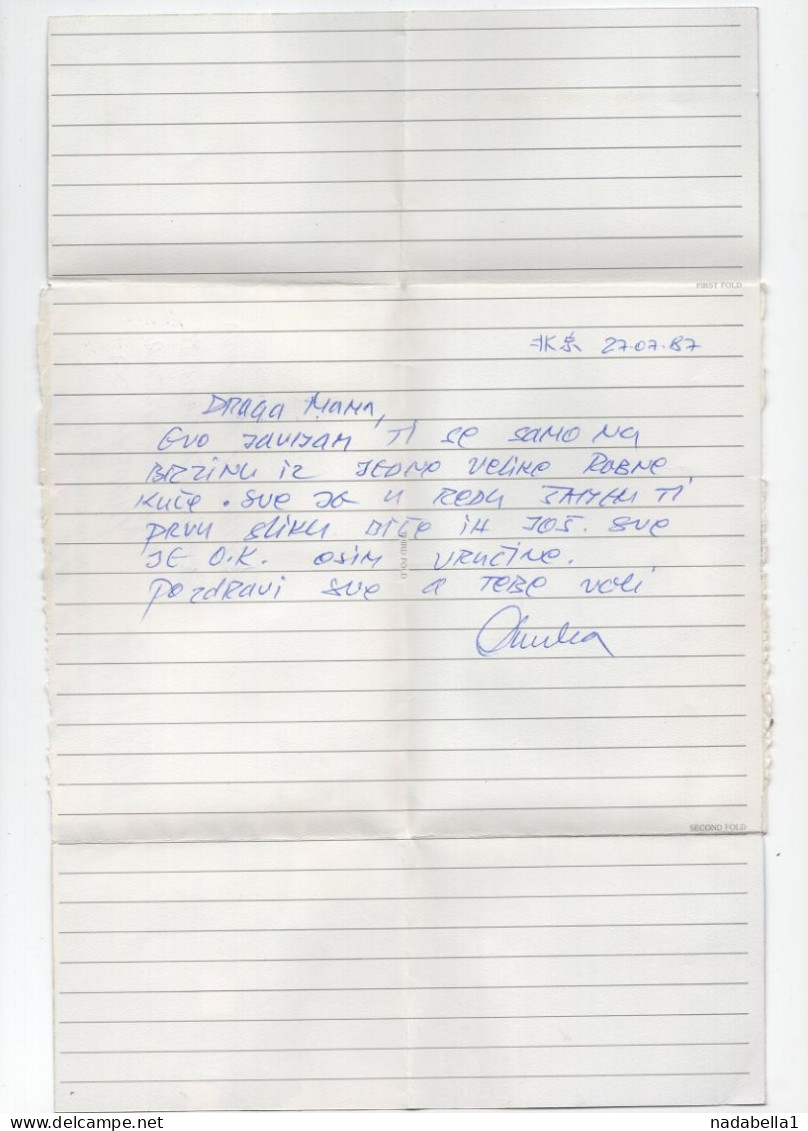 FIRST FOLD
27.07.87
Draga Mama,
Evo javljam ti se samo na
brzinu iz jedne velike robne
kuće. Sve je u redu šaljem ti
prvu sliku biće ih još. Sve
je O.K. osim vrućine.
Pozdravi sve a tebe voli
THIRD FOLD
SECOND FOLD
delcampe.net
nadabella1